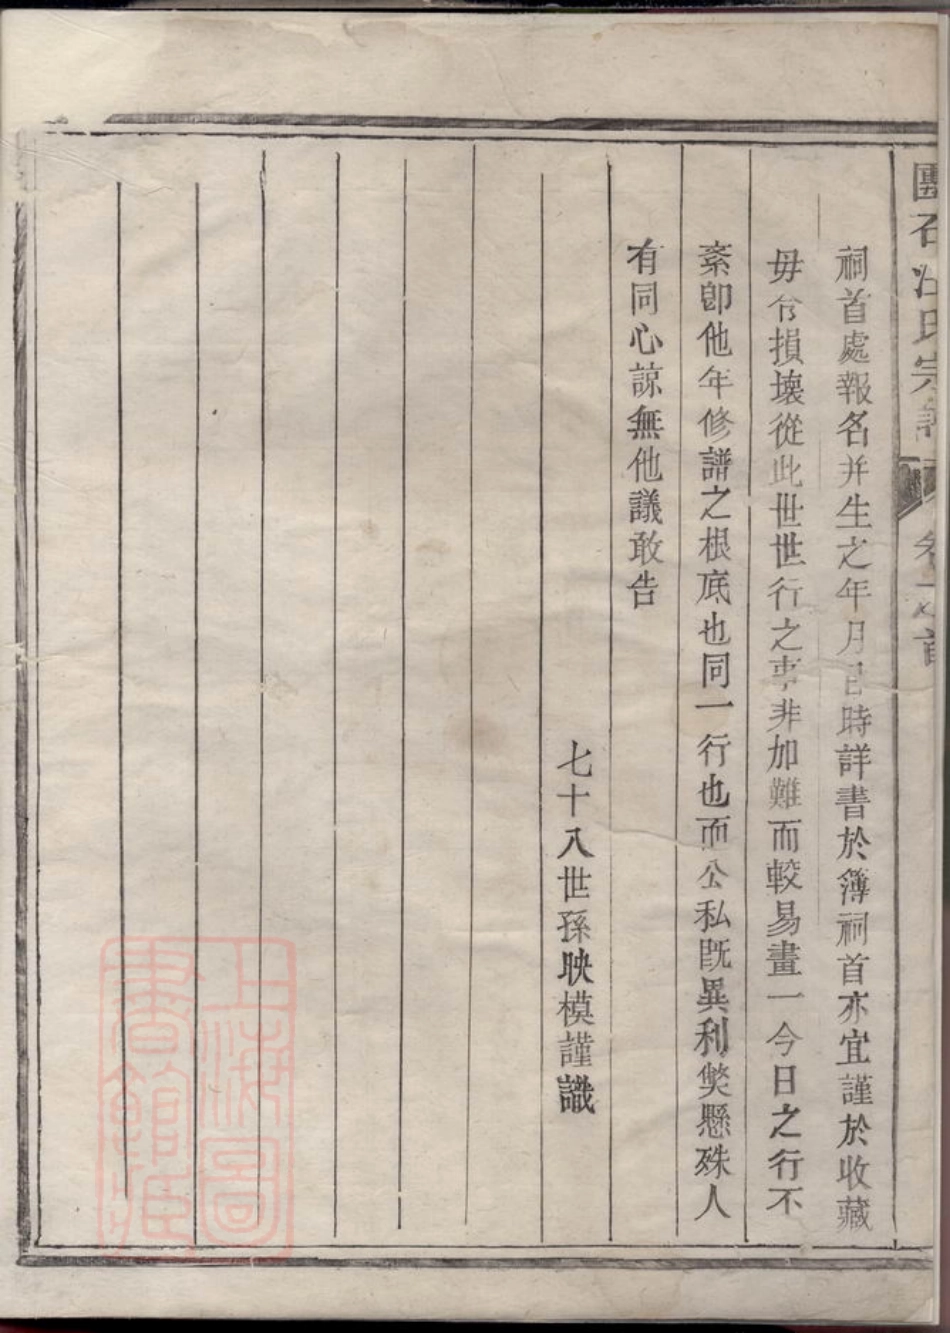 團石汪氏宗譜 卷之首
祠首處報名并生之年月日時詳書於簿祠首亦宜謹於收藏
毋令損壞從此世世行之事非加難而較易畫一今日之行不
紊卽他年修譜之根底也同一行也而公私旣異利獘懸殊人
有同心諒無他議敢告
七十八世孫映模謹識
上海圖
書館藏